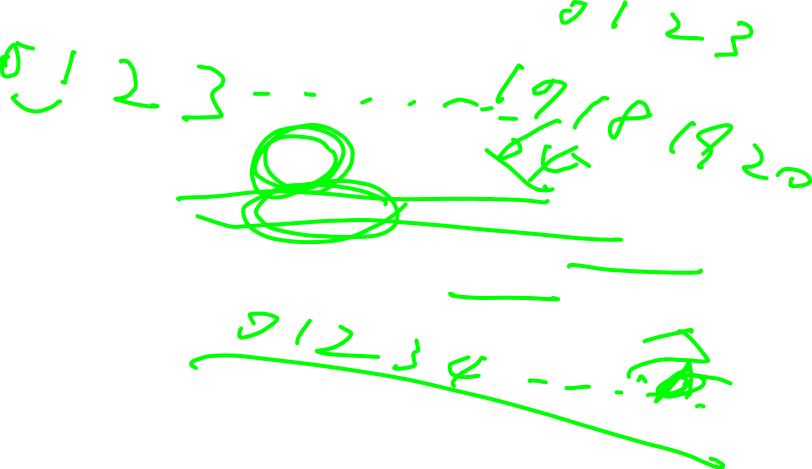 0 1 2 3
0 1 2 3 - - . . . - - 17 18 19 20
0 1 2 3 4 - - -